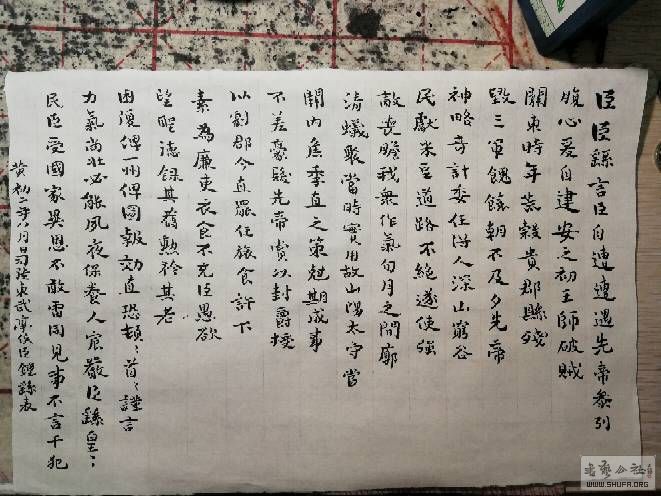 臣臣繇言臣自遭遭遇先帝忝列
腹心爰自建安之初王師破賊
關東時年荒榖貴郡縣殘
毀三軍餽饟朝不及夕先帝
神略奇計委任得人深山窮谷
民獻米豆道路不絕遂使強
敵喪膽我衆作氣旬月之間廓
清蟻聚當時實用故山陽太守當
關內焦季直之策尅期成事
不差豪髮先帝賞以封爵授
以劇郡今直罷任旅食許下
素為廉吏衣食不充臣愚欲
望聖德錄其舊勳矜其老
困復俾一州俾圖報効直恐頓〻首〻謹言
力氣尚壯必能夙夜保養人宸嚴臣繇皇〻
民臣受國家異恩不敢雷同見事不言干犯
黃初二年八月日司徒東武亭侯臣鍾繇表
WWW.SHUFA.ORG